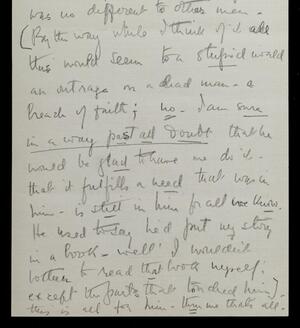 was no different to other men.
(By the way while I think of it all
this would seem to a stupid world
an outrage on a dead man - a
breach of faith; no. I am sure
in a way past all doubt that he
would be glad to have me do it -
that it fulfills a need that was in
him - is still in him for all we know.
He used to say he'd put my story
in a book - well! I wouldn't
bother to read that book myself.
except the parts that touched him)
this is all for him - thru me that's all.